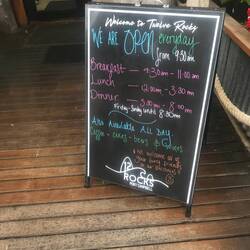 Welcome to Twelve Rocks
WE ARE OPEN everyday
from 9:30 am
Breakfast - 9:30am - 11:00 am
Lunch - 12:00pm - 3:30 pm
Dinner - 5:00pm - 8:00 pm
Friday - Sunday until 8:30pm
Also Available ALL DAY
Coffee - cakes - beers & wines
We welcome all
12
ROCKS